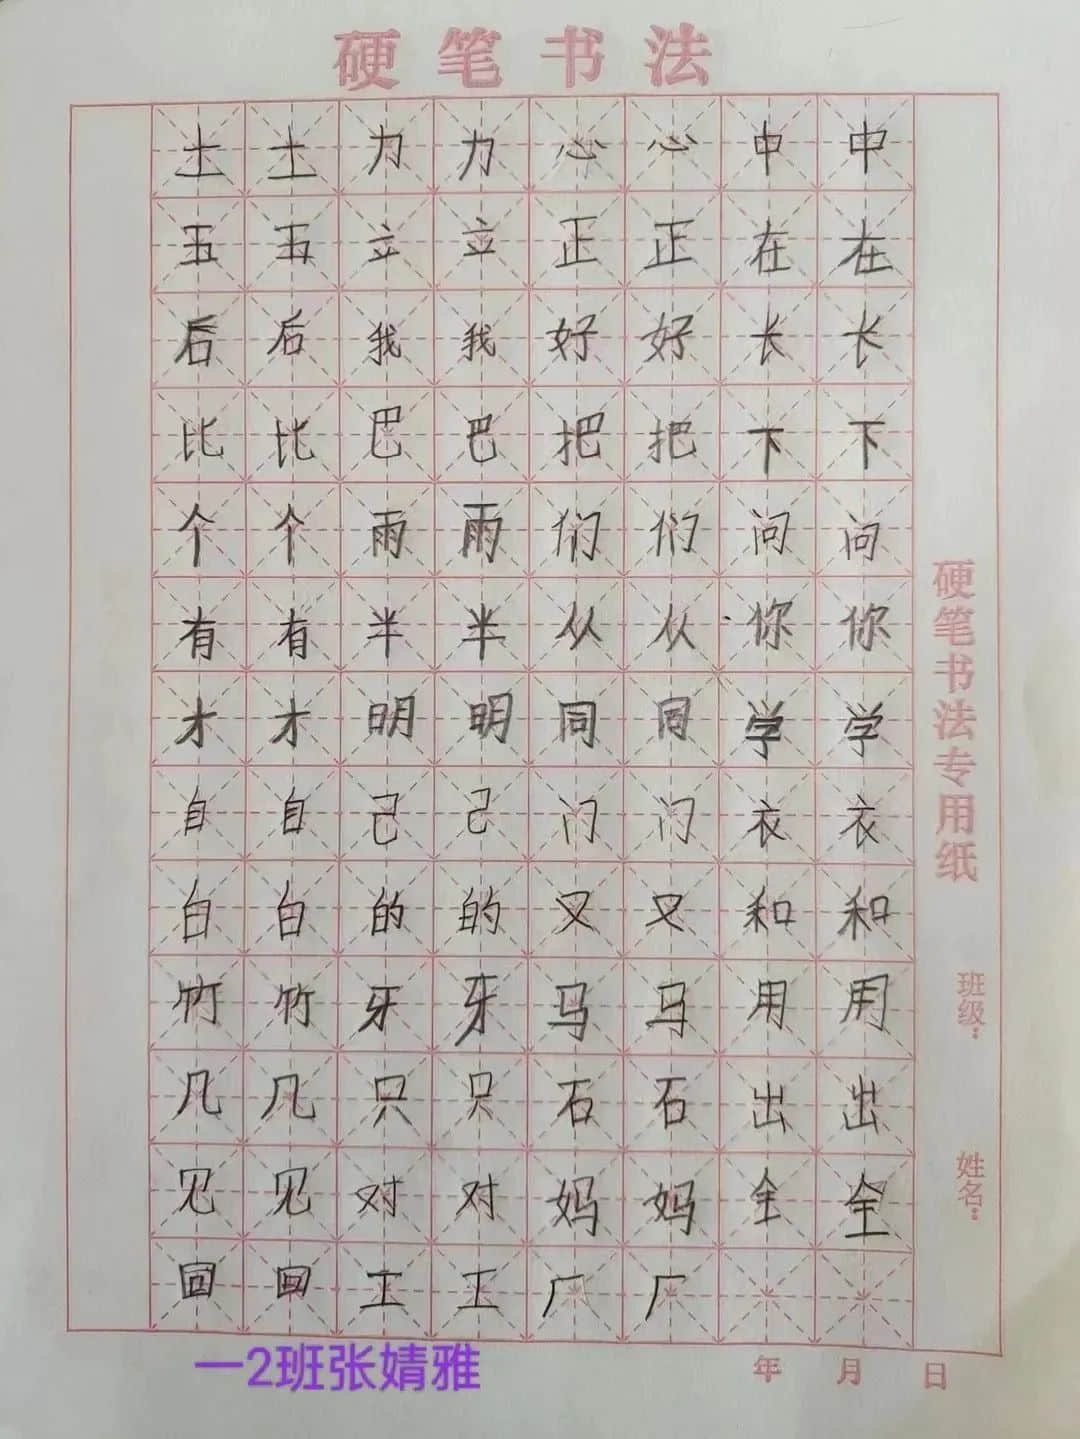 硬笔书法
土土力力心心中中
五五立立正正在在
后后我我好好长长
比比巴巴把把下下
个个雨雨们们问问
有有半半从从你你
才才明明同同学学
自自己己门门衣衣
白白的的又又和和
竹竹牙牙马马用用
几几只只石石出出
见见对对妈妈全全
回回工工厂厂
硬笔书法专用纸
班级：
姓名：
一2班张婧雅
年 月 日